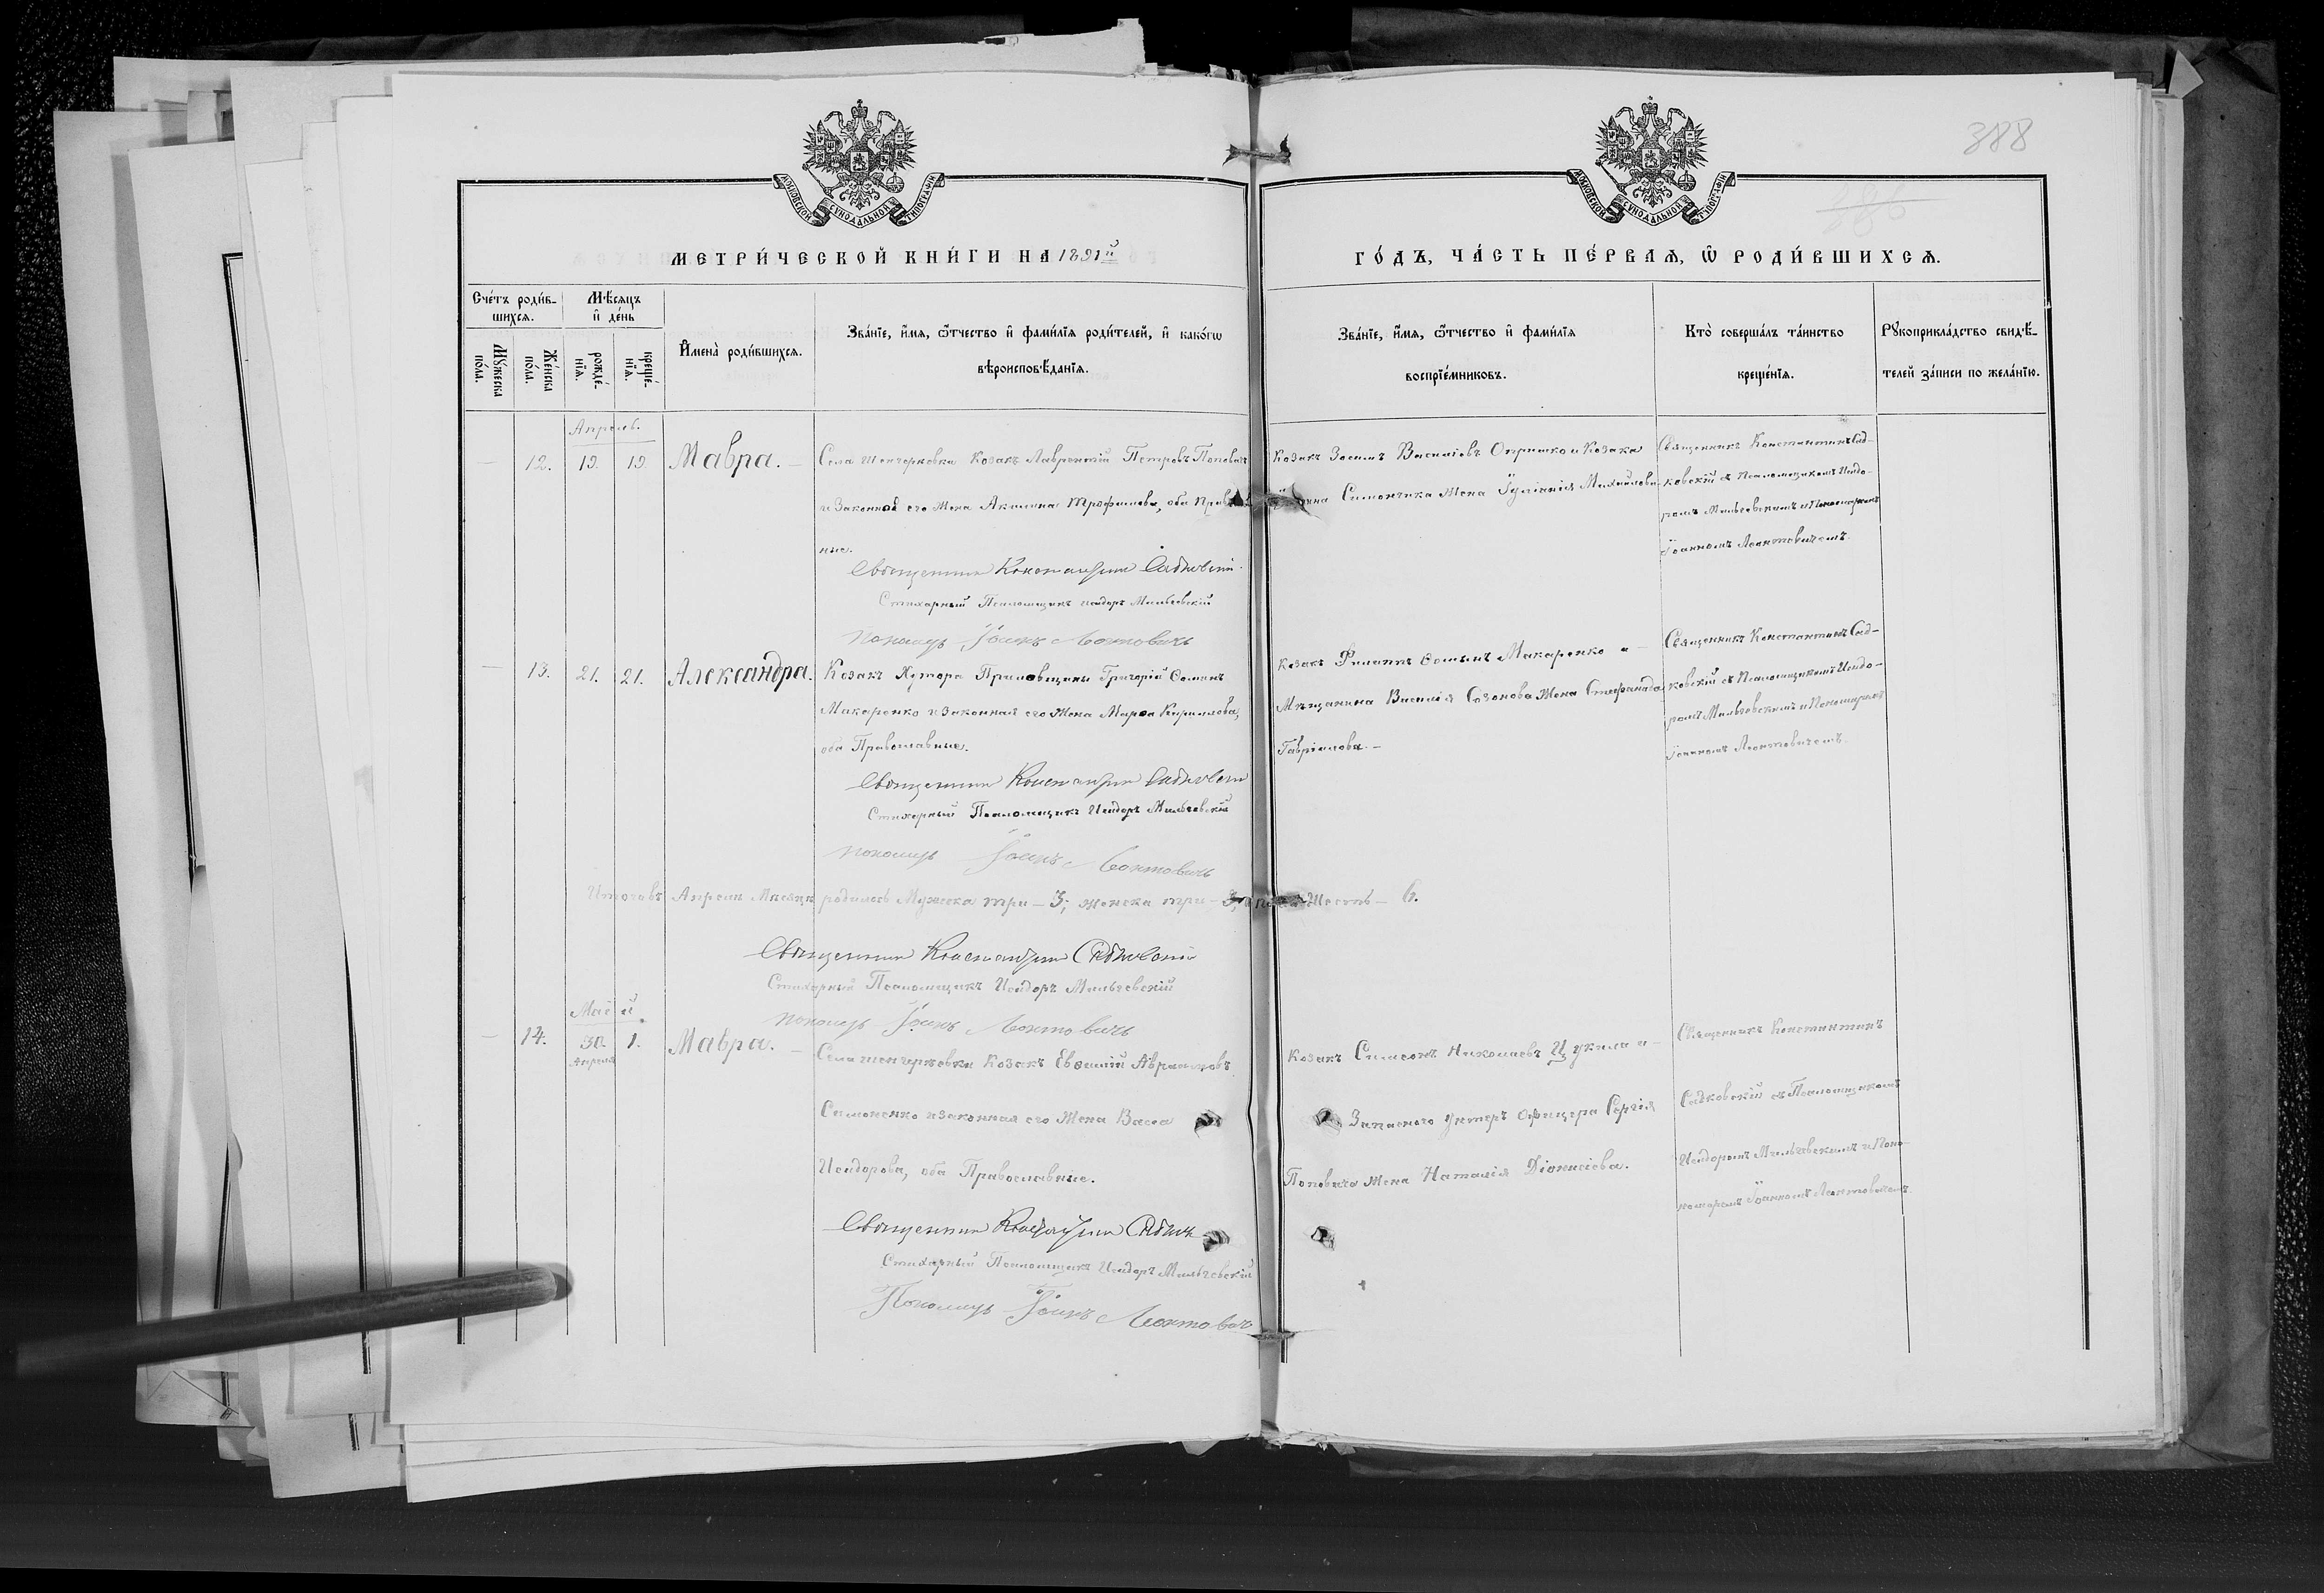 388
МОСКОВСКОЙ СУНОДАЛЬНОЙ ТИПОГРАФІИ
МОСКОВСКОЙ СУНОДАЛЬНОЙ ТИПОГРАФІИ
МЕТРИ́ЧЕСКОЙ КНИ́ГИ НА 1891й
ГО́ДЪ, ЧА́СТЬ ПЕ́РВАѦ, Ѡ РОДИ́ВШИХСѦ.
Сче́тъ роди́в-
шихсѧ.
Мѣ́сѧцъ
и де́нь
Мꙋ́жеска
по́ла.
Же́нска
по́ла.
рожде́-
нїѧ.
креще́-
нїѧ.
Имена̀ роди́вшихсѧ.
Зва́нїе, и́мѧ, ѻ́тчество и фами́лїѧ роди́телей, и како́гѡ
вѣроисповѣ́данїѧ.
Зва́нїе, и́мѧ, ѻ́тчество и фами́лїѧ
воспрїе́мниковъ.
Кто̀ соверша́лъ та́инство
креще́нїѧ.
Рꙋкоприкла́дство свидѣ́-
телей за́писи по жела́нїю.
Апрель.
12. 19. 19. Мавра.
Села Козакъ Лаврентій Петровъ Поповичъ
и законная его жена Акилина Трофимова, оба Правосла
ные.
Священникъ Константинъ Садковскій
Стихарный Псаломщикъ Исидоръ Мильчевскій
Пономарь Іоаннъ Леонтовичъ
Козакъ Зосимъ Василіевъ Опришко и Козака
Симончика жена Іуліанія Михайлова
Священникъ Константинъ Сад-
ковскій съ Псаломщикомъ Исидо-
ромъ Мильчевскимъ и Пономаремъ
Іоанномъ Леонтовичемъ.
13. 21. 21. Александра.
Козакъ Хутора Григорій Ѳоминъ
Макаренко и законная его жена Марѳа Кириллова,
оба Православные.
Священникъ Константинъ Садковскій
Стихарный Псаломщикъ Исидоръ Мильчевскій
Пономарь Іоаннъ Леонтовичъ
Козакъ Филиппъ Ѳоминъ Макаренко и
Мѣщанина Василія Созонова жена Стефанида
Гавріилова.
Священникъ Константинъ Сад-
ковскій съ Псаломщикомъ Исидо-
ромъ Мильчевскимъ и Пономаремъ
Іоанномъ Леонтовичемъ.
Итого въ Апрели Месяце родилось Мужеска три - 3; женска три - 3, Шесть - 6.
Священникъ Константинъ Садковскій
Стихарный Псаломщикъ Исидоръ Мильчевскій
Пономарь Іоаннъ Леонтовичъ
Май
14. 30. 1. Мавра.
Апреля
Села Козакъ Евѳимій Аврамовъ
Симоненко и законная его жена Васса
Исидорова, оба Православные.
Священникъ Константинъ
Стихарный Псаломщикъ Исидоръ Мильчевскій
Пономарь Іоаннъ Леонтовичъ
Козакъ Симеонъ Николаевъ Цукила и
Запасного Унтеръ Офицера Сергія
Поповича жена Наталія Діонисіева.
Священникъ Константинъ
Садковскій съ Псаломщикомъ
Исидоромъ Мильчевскимъ и Поно-
маремъ Іоанномъ Леонтовичемъ.